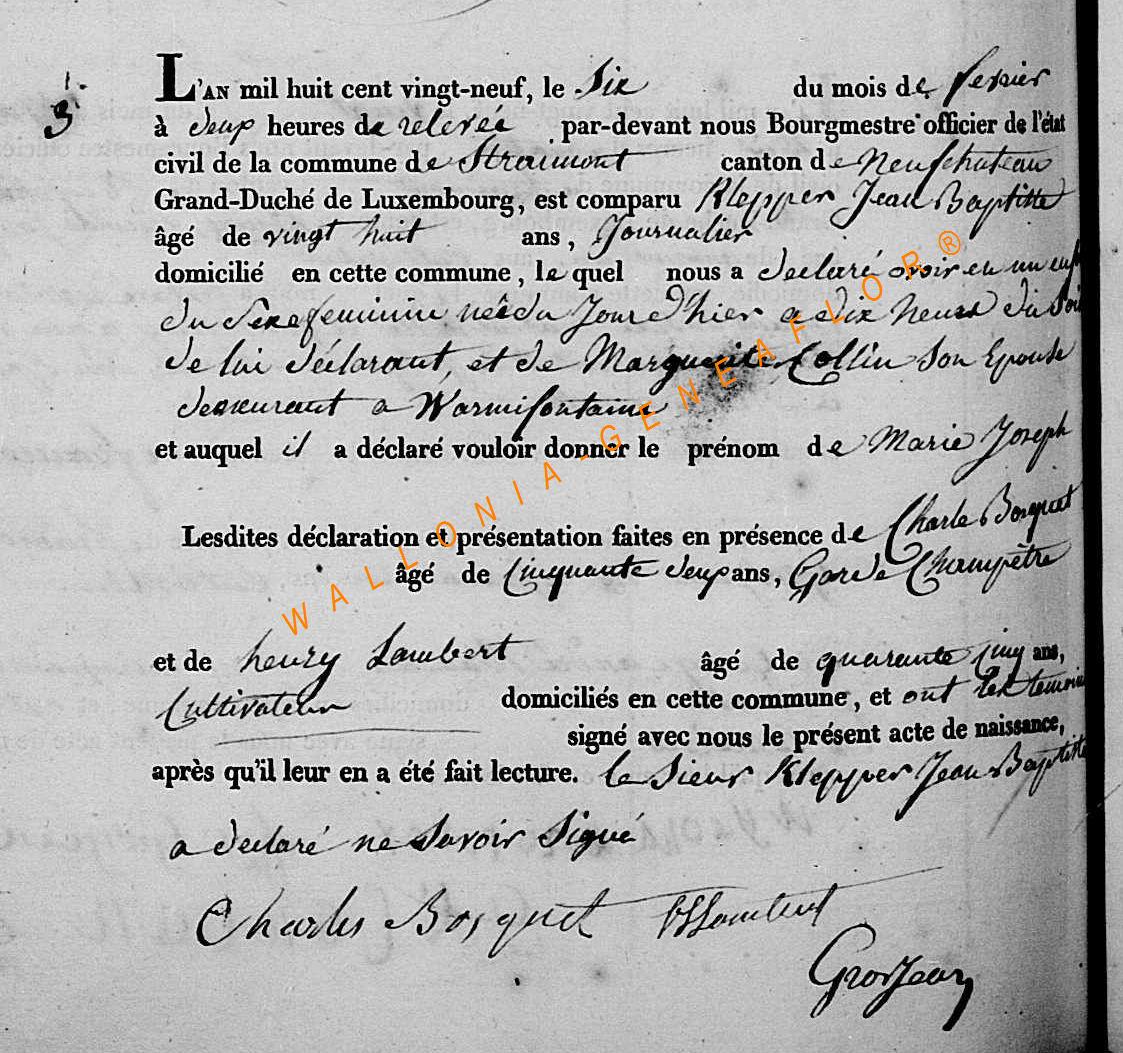 3.
L'AN mil huit cent vingt-neuf, le Six du mois de fevrier
à deux heures de relevée par-devant nous Bourgmestre officier de l'état
civil de la commune de Straimont canton de Neufchateau
Grand-Duché de Luxembourg, est comparu Klepper Jean Baptiste
âgé de vingt huit ans, Journalier
domicilié en cette commune, le quel nous a declaré avoir eu un enf
du Sexe feminin née du Jour d'hier a dix heures du Soir
de lui déclarant, et de Marguerite Collin Son Epouse
demeurant a Warmifontaine
et auquel il a déclaré vouloir donner le prénom de Marie Joseph
Lesdites déclaration et présentation faites en présence de Charle Bosquet
âgé de Cinquante deux ans, Garde Champêtre
et de henry Lambert âgé de quarante cinq ans,
Cultivateur domiciliés en cette commune, et ont les temoins
signé avec nous le présent acte de naissance,
après qu'il leur en a été fait lecture. le Sieur Klepper Jean Baptiste
a declaré ne Savoir Signé
Charles Bosquet HLambert
GrosJean
WALLONIA-GENEAFLOR®